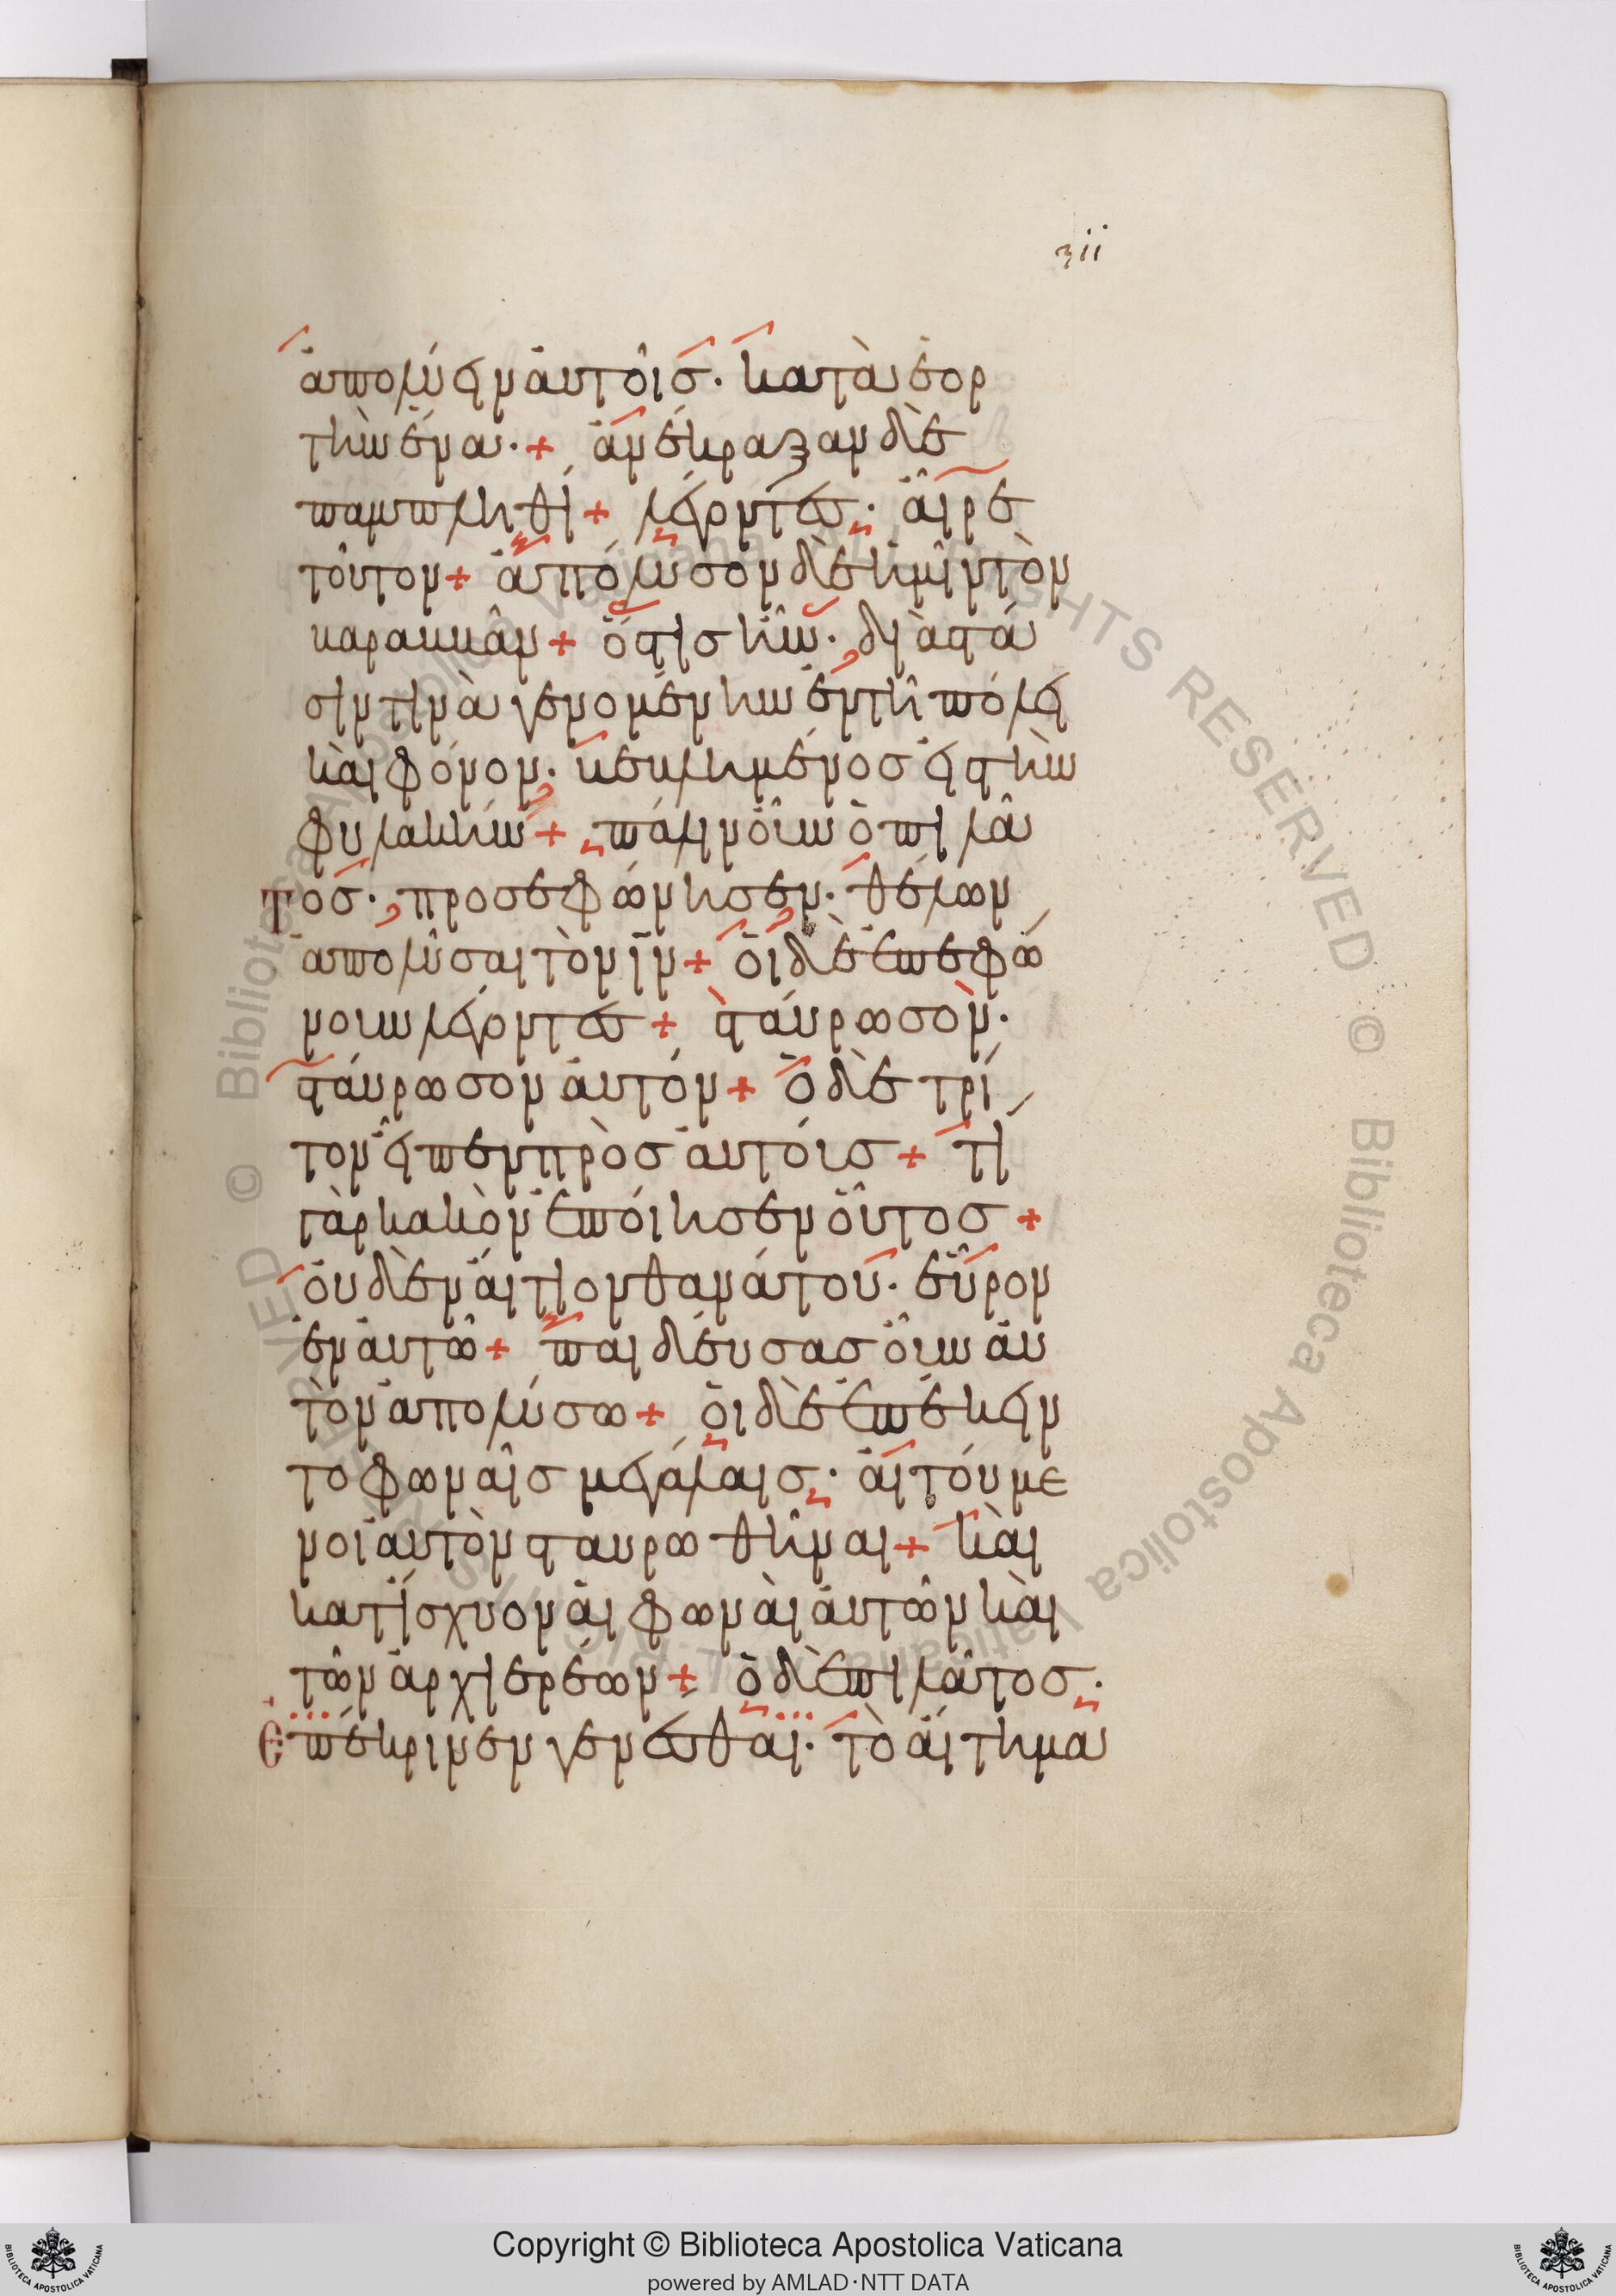 3ii
ἀπολύειν αὐτοῖσ· κατὰ ἑορ
τὴν ἕνα· + ἀνέκραξαν δὲ
παμπληθί + λέγοντεσ· αἶρε
τοῦτον + ἀπόλυσον δὲ ἡμῖν τὸν
βαραββᾶν + ὅστισ ἦν· διὰ στά
σιν τινὰ γενομένην ἐν τῆ πόλει
καὶ φόνον· βεβλημένοσ εἰσ τὴν
φυλακήν + πάλιν οὖν ὁ πιλᾶ
τοσ· προσεφώνησεν· θέλων
ἀπολῦσαι τὸν ἰν + οἱ δὲ ἐπεφώ
νουν λέγοντεσ + σταύρωσον·
σταύρωσον αὐτόν + ὁ δὲ τρί
τον εἶπεν πρὸσ αὐτούσ + τί
γὰρ κακὸν ἐποίησεν οὗτοσ +
οὐδὲν αἴτιον θανάτου· εὗρον
ἐν αὐτῶ + παιδεύσασ οὖν αὐ
τὸν ἀπολύσω + οἱ δὲ ἐπέκειν
το φωναῖσ μεγάλαισ· αἰτούμε
νοι αὐτὸν σταυρωθῆναι + καὶ
κατίσχυον αἱ φωναὶ αὐτῶν καὶ
τῶν ἀρχιερέων + ὁ δὲ πιλᾶτοσ·
ἐπέκρινεν γενέσθαι· τὸ αἴτημα
BIBLIOTECA APOSTOLICA VATICANA
Copyright © Biblioteca Apostolica Vaticana
powered by AMLAD·NTT DATA
BIBLIOTECA APOSTOLICA VATICANA